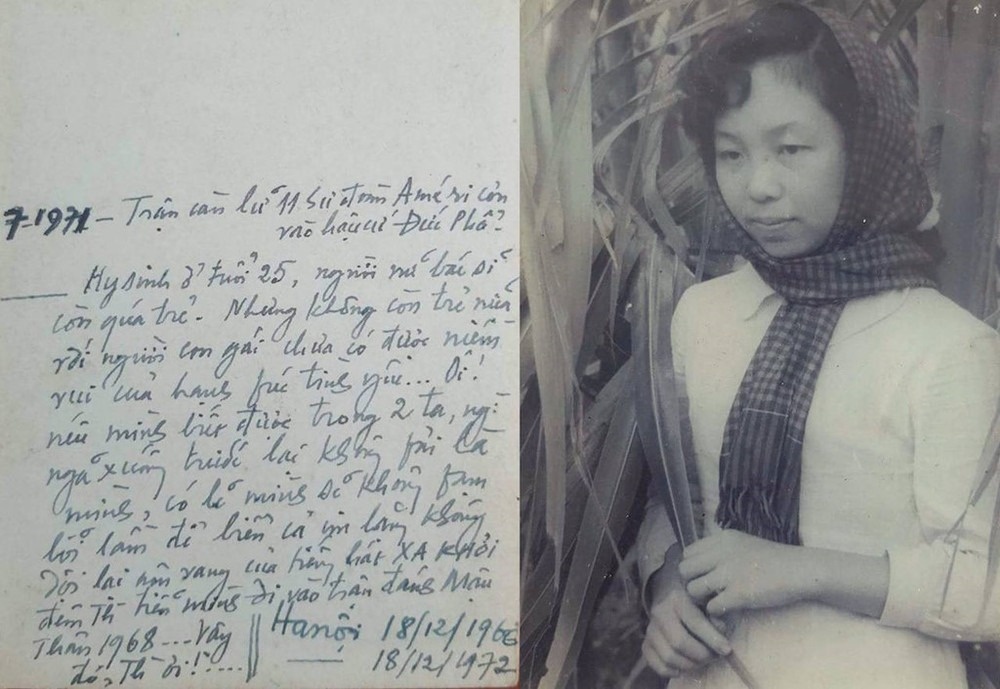 7-1971 - Trận càn lữ 11 Sư đoàn Améri cản
vào hậu cứ Đức Phổ.
Hy sinh ở tuổi 25, người nữ bác sĩ
còn quá trẻ. Nhưng không còn trẻ nữa
với người con gái chưa có được niềm
vui của hạnh fúc tình yêu... Ôi!
nếu mình biết được trong 2 ta, ng
ngã xuống trước lại không fải là
mình, có lẽ mình sẽ không fạm
lỗi lầm để biển cả im lặng không
dội lại âm vang của tiếng hát XA KHƠI
đêm Th tiễn mình đi vào trận đánh Mậu
Thân 1968.... Vậy
đó, Th ơi!....
Hanội 18/12/1966
18/12/1972